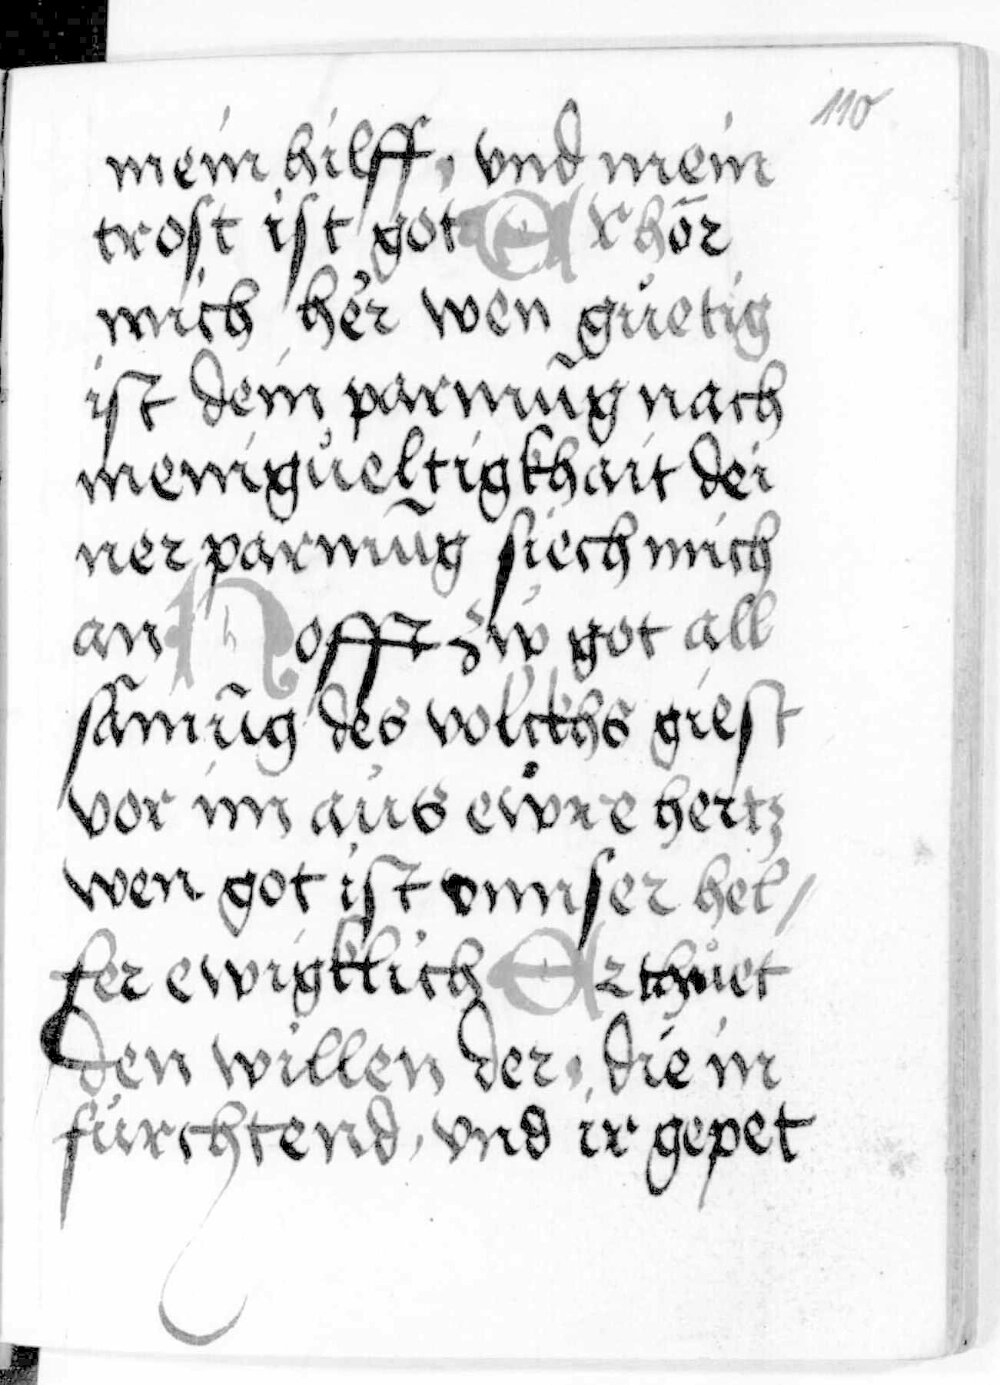 110
mein hilff, vnd mein
trost ist got Erhör
mich hër wen güetig
ist dein parmūg nach
menigueltigkhait dei
ner parmūg siech mich
an hofft zw got all
sāmūg des volckhs giest
vor im aus ewre hertz
wen got ist vnnser hel/
fer ewigklich Er thuet
den willen der, die in
fürchtend, vnd ir gepet